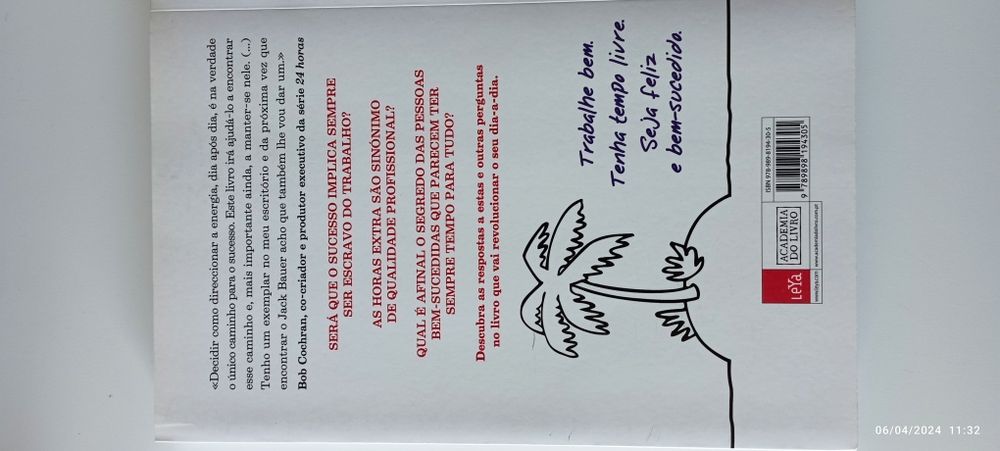 «Decidir como direccionar a energia, dia após dia, é na verdade
o único caminho para o sucesso. Este livro irá ajudá-lo a encontrar
esse caminho e, mais importante ainda, a manter-se nele. (...)
Tenho um exemplar no meu escritório e da próxima vez que
encontrar o Jack Bauer acho que também lhe vou dar um.»
Bob Cochran, co-criador e produtor executivo da série 24 horas
SERÁ QUE O SUCESSO IMPLICA SEMPRE
SER ESCRAVO DO TRABALHO?
AS HORAS EXTRA SÃO SINÓNIMO
DE QUALIDADE PROFISSIONAL?
QUAL É AFINAL O SEGREDO DAS PESSOAS
BEM-SUCEDIDAS QUE PARECEM TER
SEMPRE TEMPO PARA TUDO?
Descubra as respostas a estas e outras perguntas
no livro que vai revolucionar o seu dia-a-dia.
Trabalhe bem.
Tenha tempo livre.
Seja feliz
e bem-sucedido.
LeYa
www.leya.com
ACADEMIA
DO LIVRO
www.academiadolivro.com.pt
ISBN 978-989-8194-30-5
9 789898 194305
06/04/2024 11:32